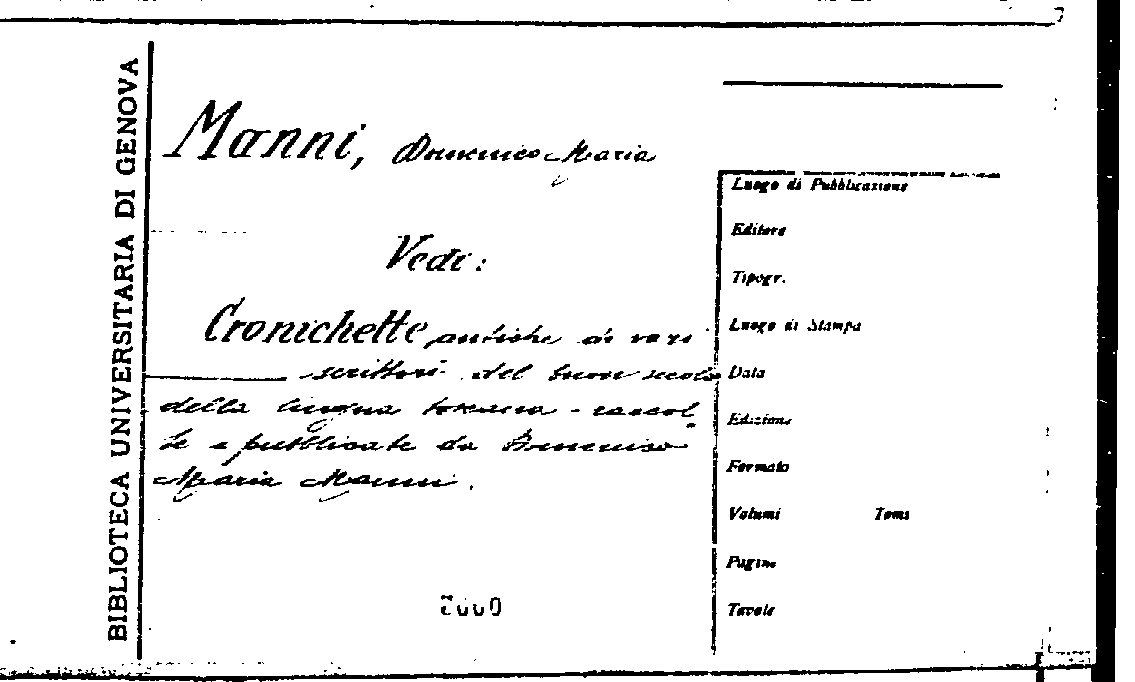 BIBLIOTECA UNIVERSITARIA DI GENOVA
Manni, Domenico Maria
Vedi:
Cronichette antiche di vari
scrittori del buon secolo
della lingua toscana - raccol
te e pubblicate da Domenico
Maria Manni.
Luogo di Pubblicazione
Editore
Tipogr.
Luogo di Stampa
Data
Edizione
Formato
Volumi Tomi
Pagine
Tavole